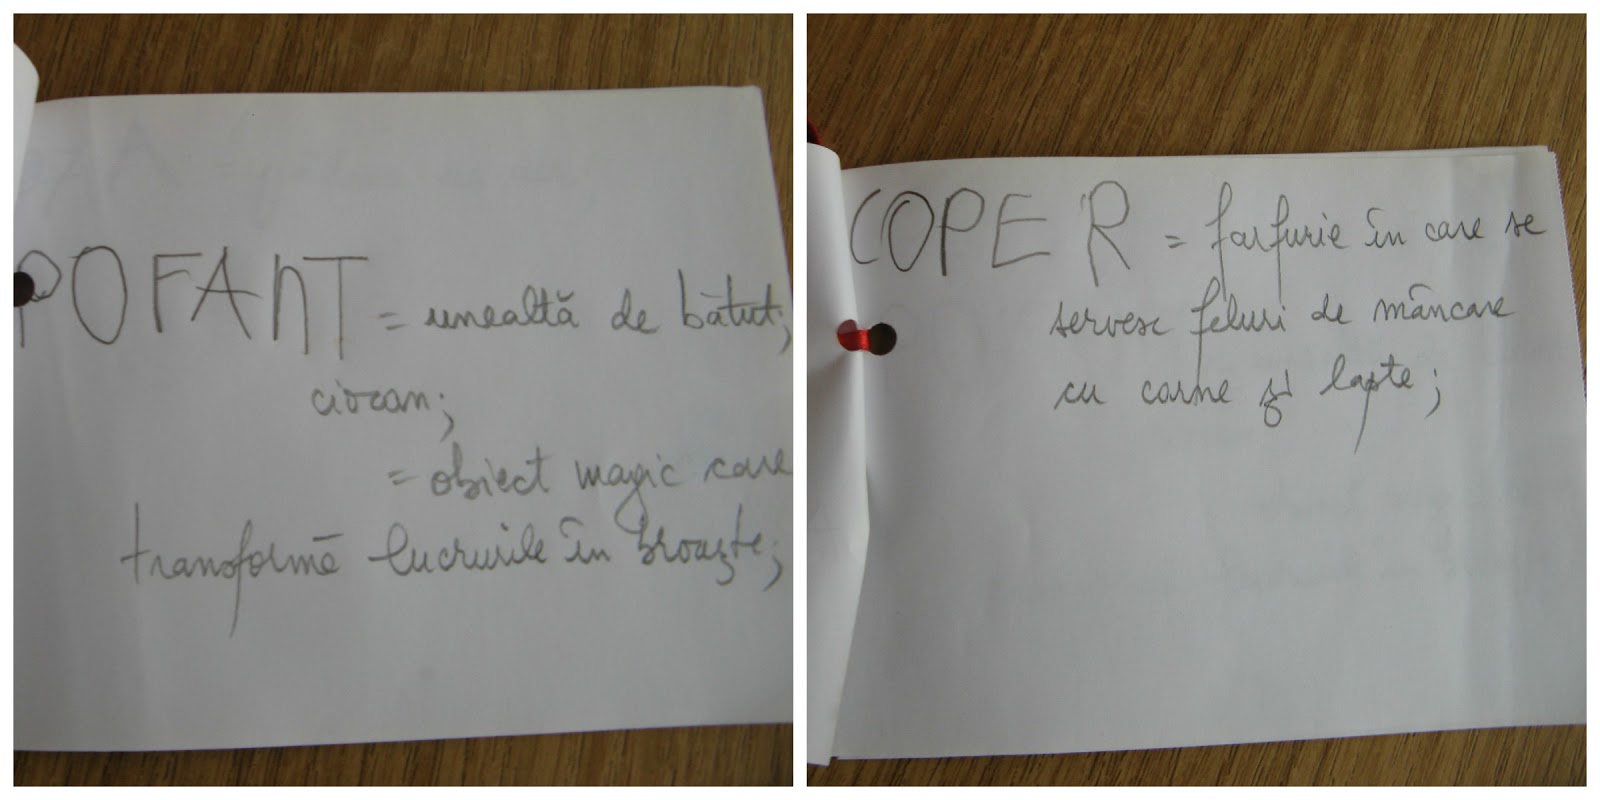 POFANT = unealtă de bătut;
ciocan;
= obiect magic care
transformă lucrurile în broaște;
COPER = farfurie în care se
servesc feluri de mâncare
cu carne și lapte;